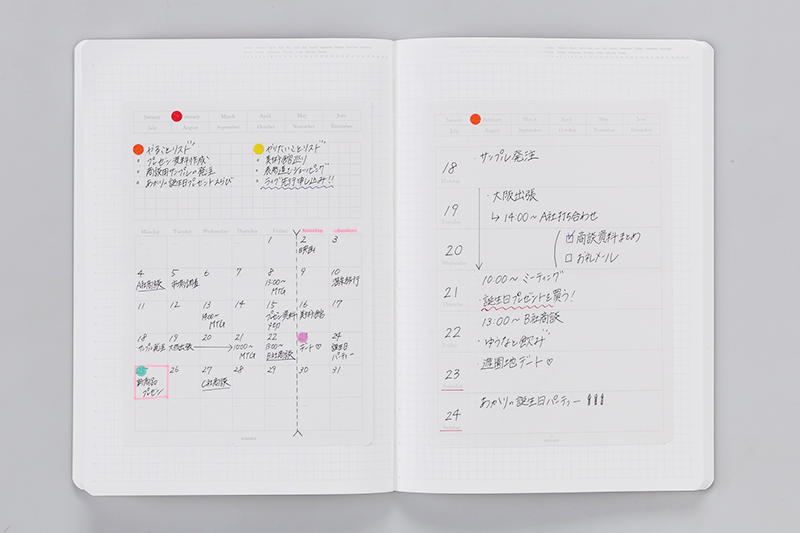 January March April May June
July August September October November December
やることリスト
プレゼン資料作成
商談用サンプルの発注
あかりの誕生日プレゼントえらび
やりたいことリスト
美術館巡り
表参道でショッピング
ライブ先行申し込み!!
Monday Tuesday Wednesday Thursday Friday Saturday Sunday
1 2 3
映画
4 5 6 7 8 9 10
A社商談 市場調査 13:00〜MTG 温泉旅行
11 12 13 14 15 16 17
14:00〜MTG プレゼン資料〆切 美術館
18 19 20 21 22 24
サンプル発注 大阪出張 10:00〜MTG 13:00〜B社商談 デート♡ 誕生日パーティー
26 27 28 29 30 31
新商品プレゼン C社商談
January February March April May June
July August September October November December
18 ・サンプル発注
Monday
19 ・大阪出張
Tuesday
↳ 14:00〜A社打ち合わせ
20 ☑ 商談資料まとめ
Wednesday
☐ お礼メール
21 10:00〜ミーティング
Thursday
・誕生日プレゼントを買う!
22 13:00〜B社商談
Friday
・ゆうなと飲み
23 ・遊園地デート♡
Saturday
24 あかりの誕生日パーティー
Sunday